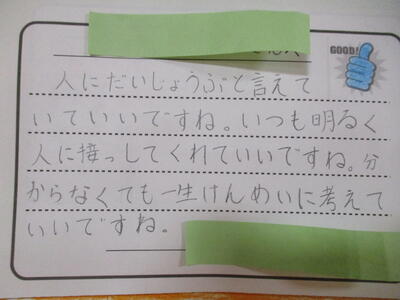 GOOD!
人にだいじょうぶと言えて
いていいですね。いつも明るく
人に接っしてくれていいですね。分
からなくても一生けんめいに考えて
いいですね。